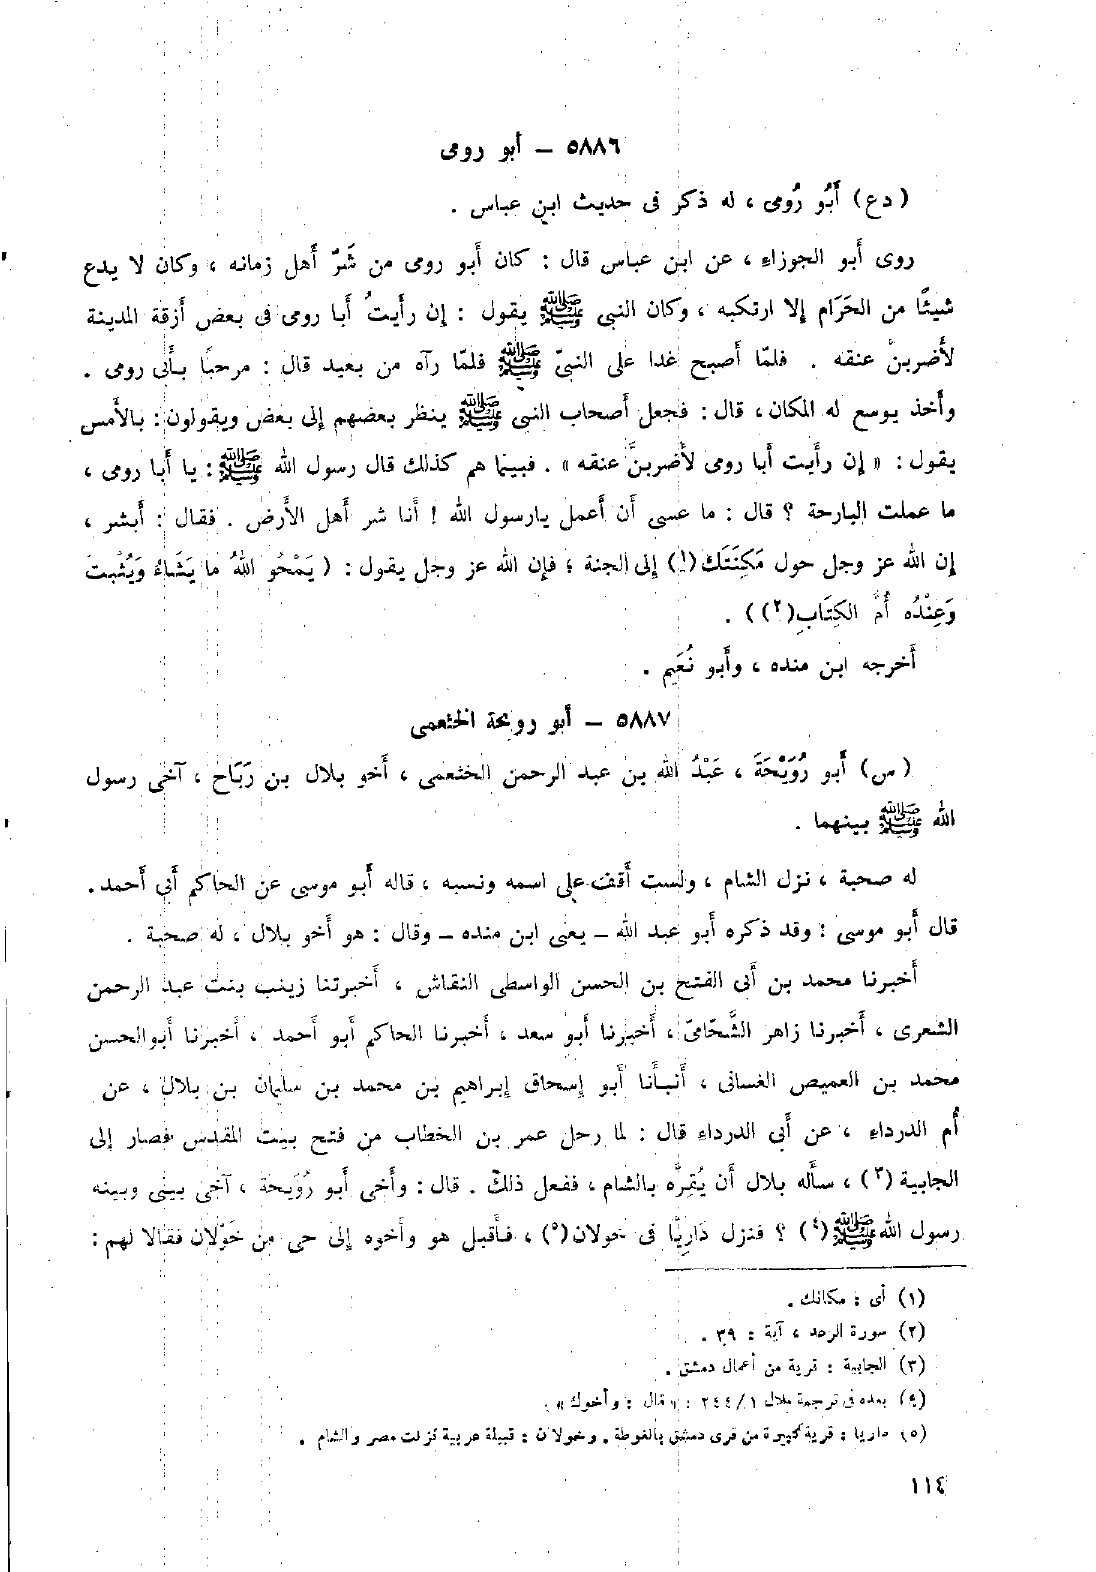 ٥٨٨٦ – أبو رومى
(دع) أَبُو رُومى ، له ذكر فى حديث ابن عباس .
روى أبو الجوزاء ، عن ابن عباس قال : كان أبو رومى من شَرِّ أهل زمانه ، وكان لا يدع
شيئًا من الحَرَام إلا ارتكبه ، وكان النبى ﷺ يقول : إن رأيتُ أبا رومى فى بعض أزقة المدينة
لأضربنَّ عنقه . فلمّا أصبح غدا على النبىّ ﷺ فلمّا رآه من بعيد قال : مرحبًا بأَبى رومى .
وأخذ يوسع له المكان ، قال : فجعل أصحاب النبى ﷺ ينظر بعضهم إلى بعض ويقولون : بالأمس
يقول : « إن رأيت أبا رومى لأضربنَّ عنقه » . فبينما هم كذلك قال رسول الله ﷺ : يا أبا رومى ،
ما عملت البارحة ؟ قال : ما عسى أن أعمل يارسول الله ! أنا شر أهل الأرض . فقال : أبشر ،
إن الله عز وجل حول مَكِنَتَك(١) إلى الجنة ؛ فإن الله عز وجل يقول : ( يَمْحُو اللهُ ما يَشَاءُ وَيُثْبِتُ
وَعِنْدُه أُمُّ الكِتَابِ(٢) ) .
أخرجه ابن منده ، وأبو نُعَيم .
٥٨٨٧ – أبو رويحة الخثعمى
(س) أبو رُوَيْحَةَ ، عَبْدُ الله بن عبد الرحمن الخثعمى ، أخو بلال بن رَبَاح ، آخى رسول
الله ﷺ بينهما .
له صحبة ، نزل الشام ، ولست أقف على اسمه ونسبه ، قاله أبو موسى عن الحاكم أبي أحمد .
قال أبو موسى : وقد ذكره أبو عبد الله – يعنى ابن منده – وقال : هو أخو بلال ، له صحبة .
أخبرنا محمد بن أبى الفتح بن الحسن الواسطى النقاش ، أخبرتنا زينب بنت عبد الرحمن
الشعرى ، أخبرنا زاهر الشَّحّامىّ ، أخبرنا أبو سعد ، أخبرنا الحاكم أبو أحمد ، أخبرنا أبوالحسن
محمد بن العميص الغسانى ، أنبأنا أبو إسحاق إبراهيم بن محمد بن سليمان بن بلال ، عن
أم الدرداء ، عن أبي الدرداء قال : لما رحل عمر بن الخطاب من فتح بيت المقدس فصار إلى
الجابية (٣) ، سأله بلال أن يُقِرَّه بالشام ، ففعل ذلك . قال : وأخى أبو رُوَيحة ، آخى بينى وبينه
رسول الله ﷺ (٤) ؟ فنزل دَارِيَّا فى خولان(٥) ، فأقبل هو وأخوه إلى حى من خَوْلان فقالا لهم :
(١) أى : مكانك .
(٢) سورة الرعد ، آية : ٣٩ .
(٣) الجابية : قرية من أعمال دمشق .
(٤) بعده فى ترجمة بلال ٢٤٤/١ : « قال : وأخوك » .
(٥) داريا : قرية كبيرة من قرى دمشق بالغوطة . وخولان : قبيلة عربية نزلت مصر والشام .
١١٤